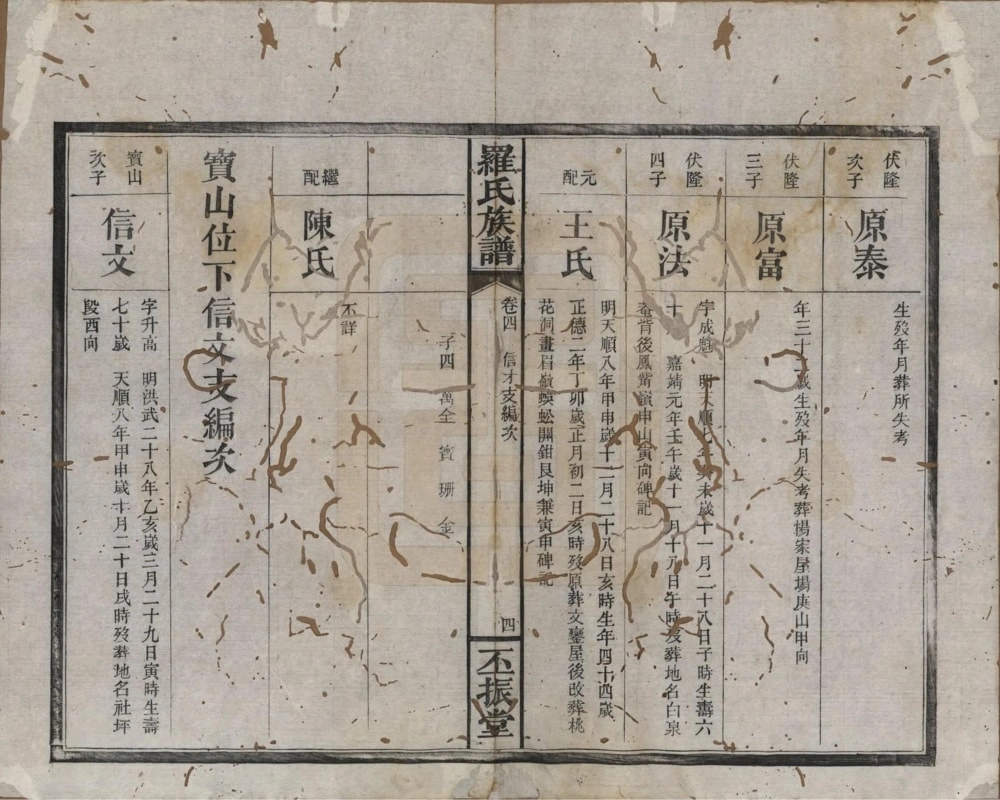 伏隆
次子
原泰
生歿年月葬所失考
伏隆
三子
原富
年三十 歲生歿年月失考葬楊家屋場庚山甲向
伏隆
四子
原法
字成彪 明天順七年癸未歲十一月二十八日子時生壽六
十 嘉靖元年壬午歲十一月十九日午時歿葬地名白泉
菴背後鳳觜嶺申山寅向碑記
元配
王氏
明天順八年甲申歲十二月二十八日亥時生年四十四歲
正德二年丁卯歲正月初二日亥時歿原葬文鑒屋後改葬桃
花洞畫眉嶺蜈蚣開鉗艮坤兼寅申碑記
羅氏族譜
卷四 信才支編次
四
丕振堂
子四 萬全 寶 珊 金
繼配
陳氏
不詳
寶山位下信文支編次
寶山
次子
信文
字升高 明洪武二十八年乙亥歲三月二十九日寅時生壽
七十歲 天順八年甲申歲十月二十日戌時歿葬地名社坪
段西向